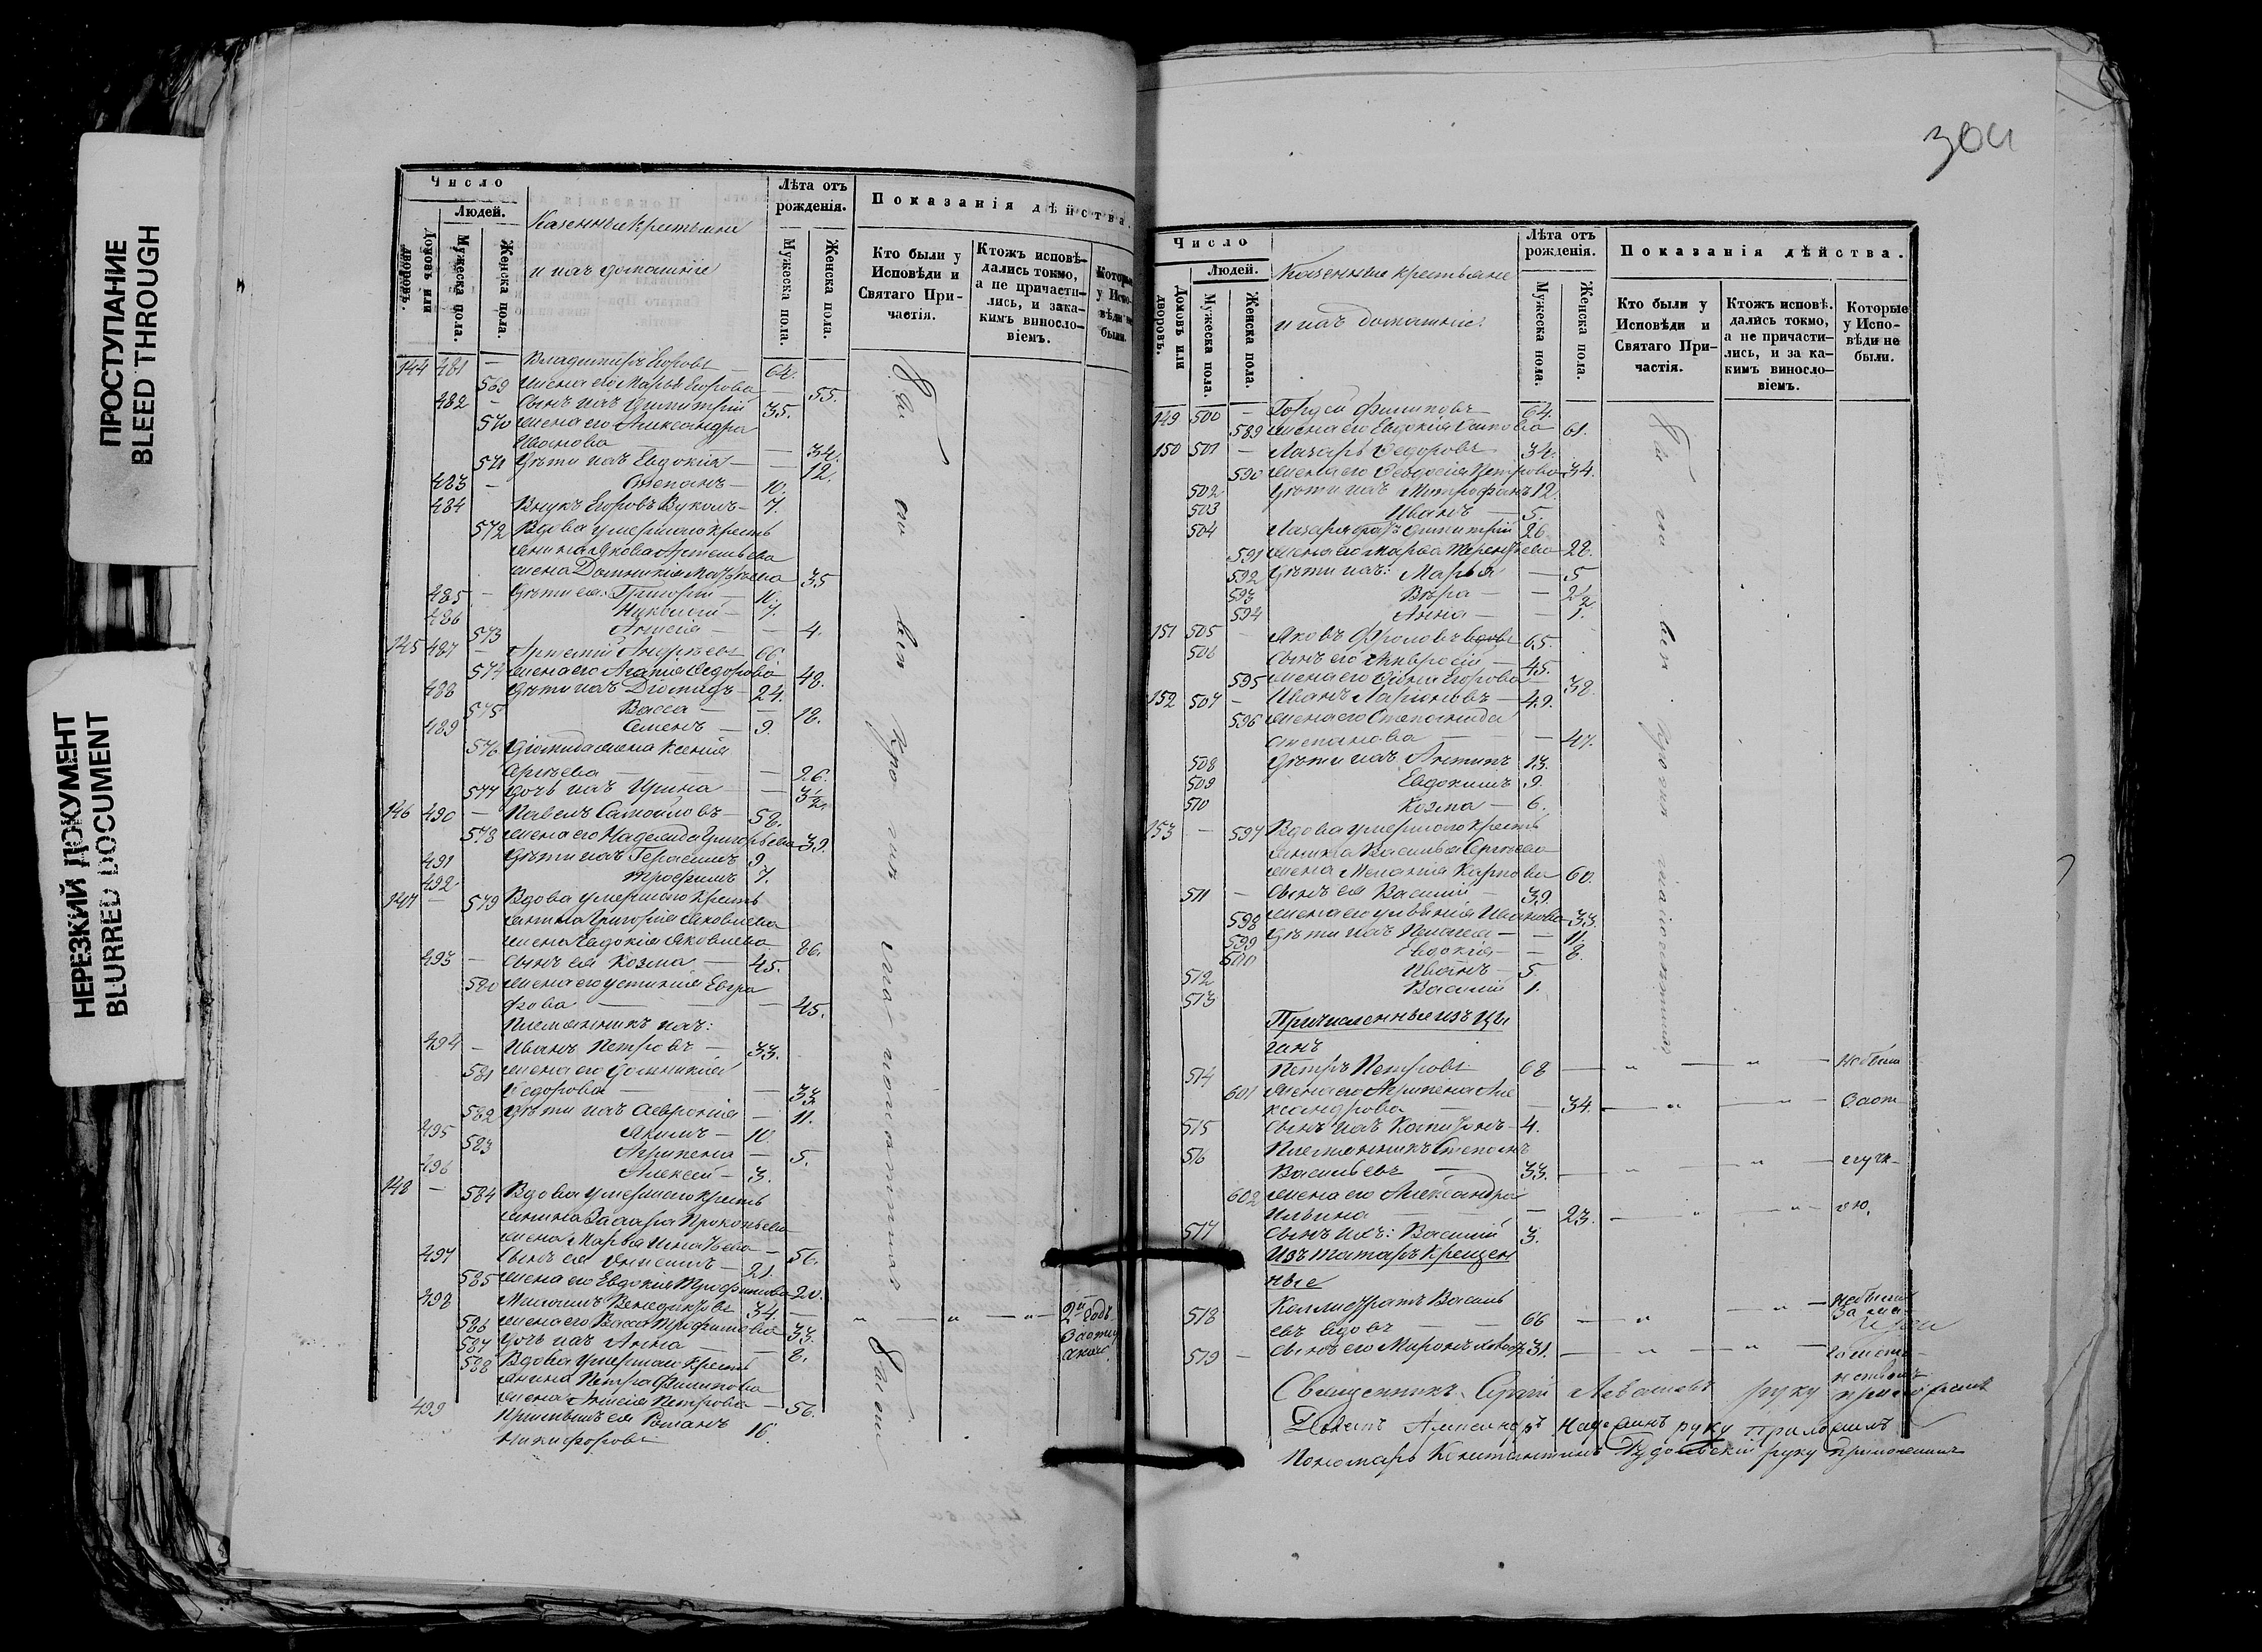 ПРОСТУПАНИЕ
BLEED THROUGH
НЕРЕЗКИЙ ДОКУМЕНТ
BLURRED DOCUMENT
Число
Людей.
Домовъ или дворовъ.
Мужеска пола.
Женска пола.
Казенные крестьяне
и ихъ домашніе
Лѣта отъ рожденія.
Мужеска пола.
Женска пола.
Показанія дѣйства
Кто были у Исповѣди и Святаго Причастія.
Ктожъ исповѣдались токмо, а не причастились, и за какимъ винословіемъ.
Которые у Исповѣди не были.
144 481 — Владимиръ Егоровъ — 62.
569 жена его Марья Егорова — 55.
482 — Сынъ ихъ Димитрій 35.
570 жена его Александра
Иванова — 34.
571 Дѣти ихъ Евдокія — 12.
483 — Степанъ — 10.
484 Внукъ Егоровъ Вуколъ — 7.
572 Вдова умершаго кресть
янина Якова Артемьева
жена Домникія 35
485 — Дѣти ея: Григорій — 10.
486 Николай — 7.
573 Анисія — 4.
145 487 — Артемій Андреевъ 66
574 жена его Агапія Федорова 48.
488 Дѣти ихъ Діомидъ — 24.
575 Васса — 18.
489 Семенъ — 9.
576 Діомида жена Ксенія
Сергѣева — 26.
577 дочь ихъ Ирина — 3½.
146 490 — Павелъ Самойловъ — 58.
578 жена его Надежда Григорьева 39.
491 Дѣти ихъ Герасимъ 9
492 Трофимъ 7.
147 — 579 Вдова умершаго кресть
янина Григорія Яковлева
жена Евдокія Яковлева 86.
493 — Сынъ ея Козма — 45.
580 жена его Устинія Евгра
фова — 45.
Племянникъ ихъ:
494 — Иванъ Петровъ — 33.
581 жена его Домникія
Федорова — 33
582 Дѣти ихъ Февронія — 11.
495 Якимъ — 10.
583 Агрипена — 5.
496 Алексей — 3.
148 — 584 Вдова умершаго кресть
янина Захара Прокопьева
жена Марья Игнатьева — 56.
497 Сынъ ея Анисимъ — 21.
585 жена его Евдокія Трофимова 20.
498 Михаилъ Венедиктовъ 34 —
586 жена его Васса Трофимова 33.
587 дочь ихъ Анна — 8.
588 Вдова умершаго кресть
янина Петра Филипова
жена Анисія Петрова — 56.
499 Пріемышъ ея Романъ 16.
Никифоровъ
304
Число
Людей.
Домовъ или дворовъ.
Мужеска пола.
Женска пола.
Казенные крестьяне
и ихъ домашніе.
Лѣта отъ рожденія.
Мужеска пола.
Женска пола.
Показанія дѣйства.
Кто были у Исповѣди и Святаго Причастія.
Ктожъ исповѣ. дались токмо, а не причастились, и за какимъ винословіемъ.
Которые у Исповѣди не были.
149 500 — Гордей Филиповъ — 64.
589 жена его Евдокія 61.
150 501 — Лазарь Федоровъ 34.
590 жена его Феодосія Петрова 34.
502 Дѣти ихъ Митрофанъ 12.
503 Иванъ — 5.
504 Лазаря братъ Димитрій 26
591 жена его Марѳа Терентьева 28.
592 Дѣти ихъ: Марья — 5
593 Вѣра — 2½
594 Анна — 1.
151 505 — Яковъ Фроловъ вдовъ 65.
506 Сынъ его Амвросій — 45.
595 жена его Егорова — 38.
152 507 — Иванъ Ларіоновъ — 49.
596 жена его Степанида
Степанова — 47.
508 Дѣти ихъ Антипъ 13.
509 Евдокимъ 9.
510 Козма — 6.
153 — 597 Вдова умершаго кресть
янина Василья Сергѣева
жена Меланія Карпова 60.
511 — Сынъ ея Василій — 39.
598 жена его Иванова 33.
599 Дѣти ихъ Пелагея — 11.
600 Евдокія — 8.
512 Иванъ — 5.
513 Василій 1.
Причисленные изъ Цы
ганъ
514 Петръ Петровъ 68
601 жена его Агрипена Але
ксандрова — 34.
515 Сынъ ихъ 4.
516 Племянникъ Степанъ
Васильевъ — 33.
602 жена его Александра
Ильина — 23.
517 Сынъ ихъ: Василій 3.
Изъ татаръ крещен
ные
518 Каллистратъ Василь
евъ вдовъ — 66
519 — Сынъ его Миронъ 31.
не были
за от
луч
кою.
Священникъ руку приложилъ
руку приложилъ
Пономарь Константинъ руку приложилъ